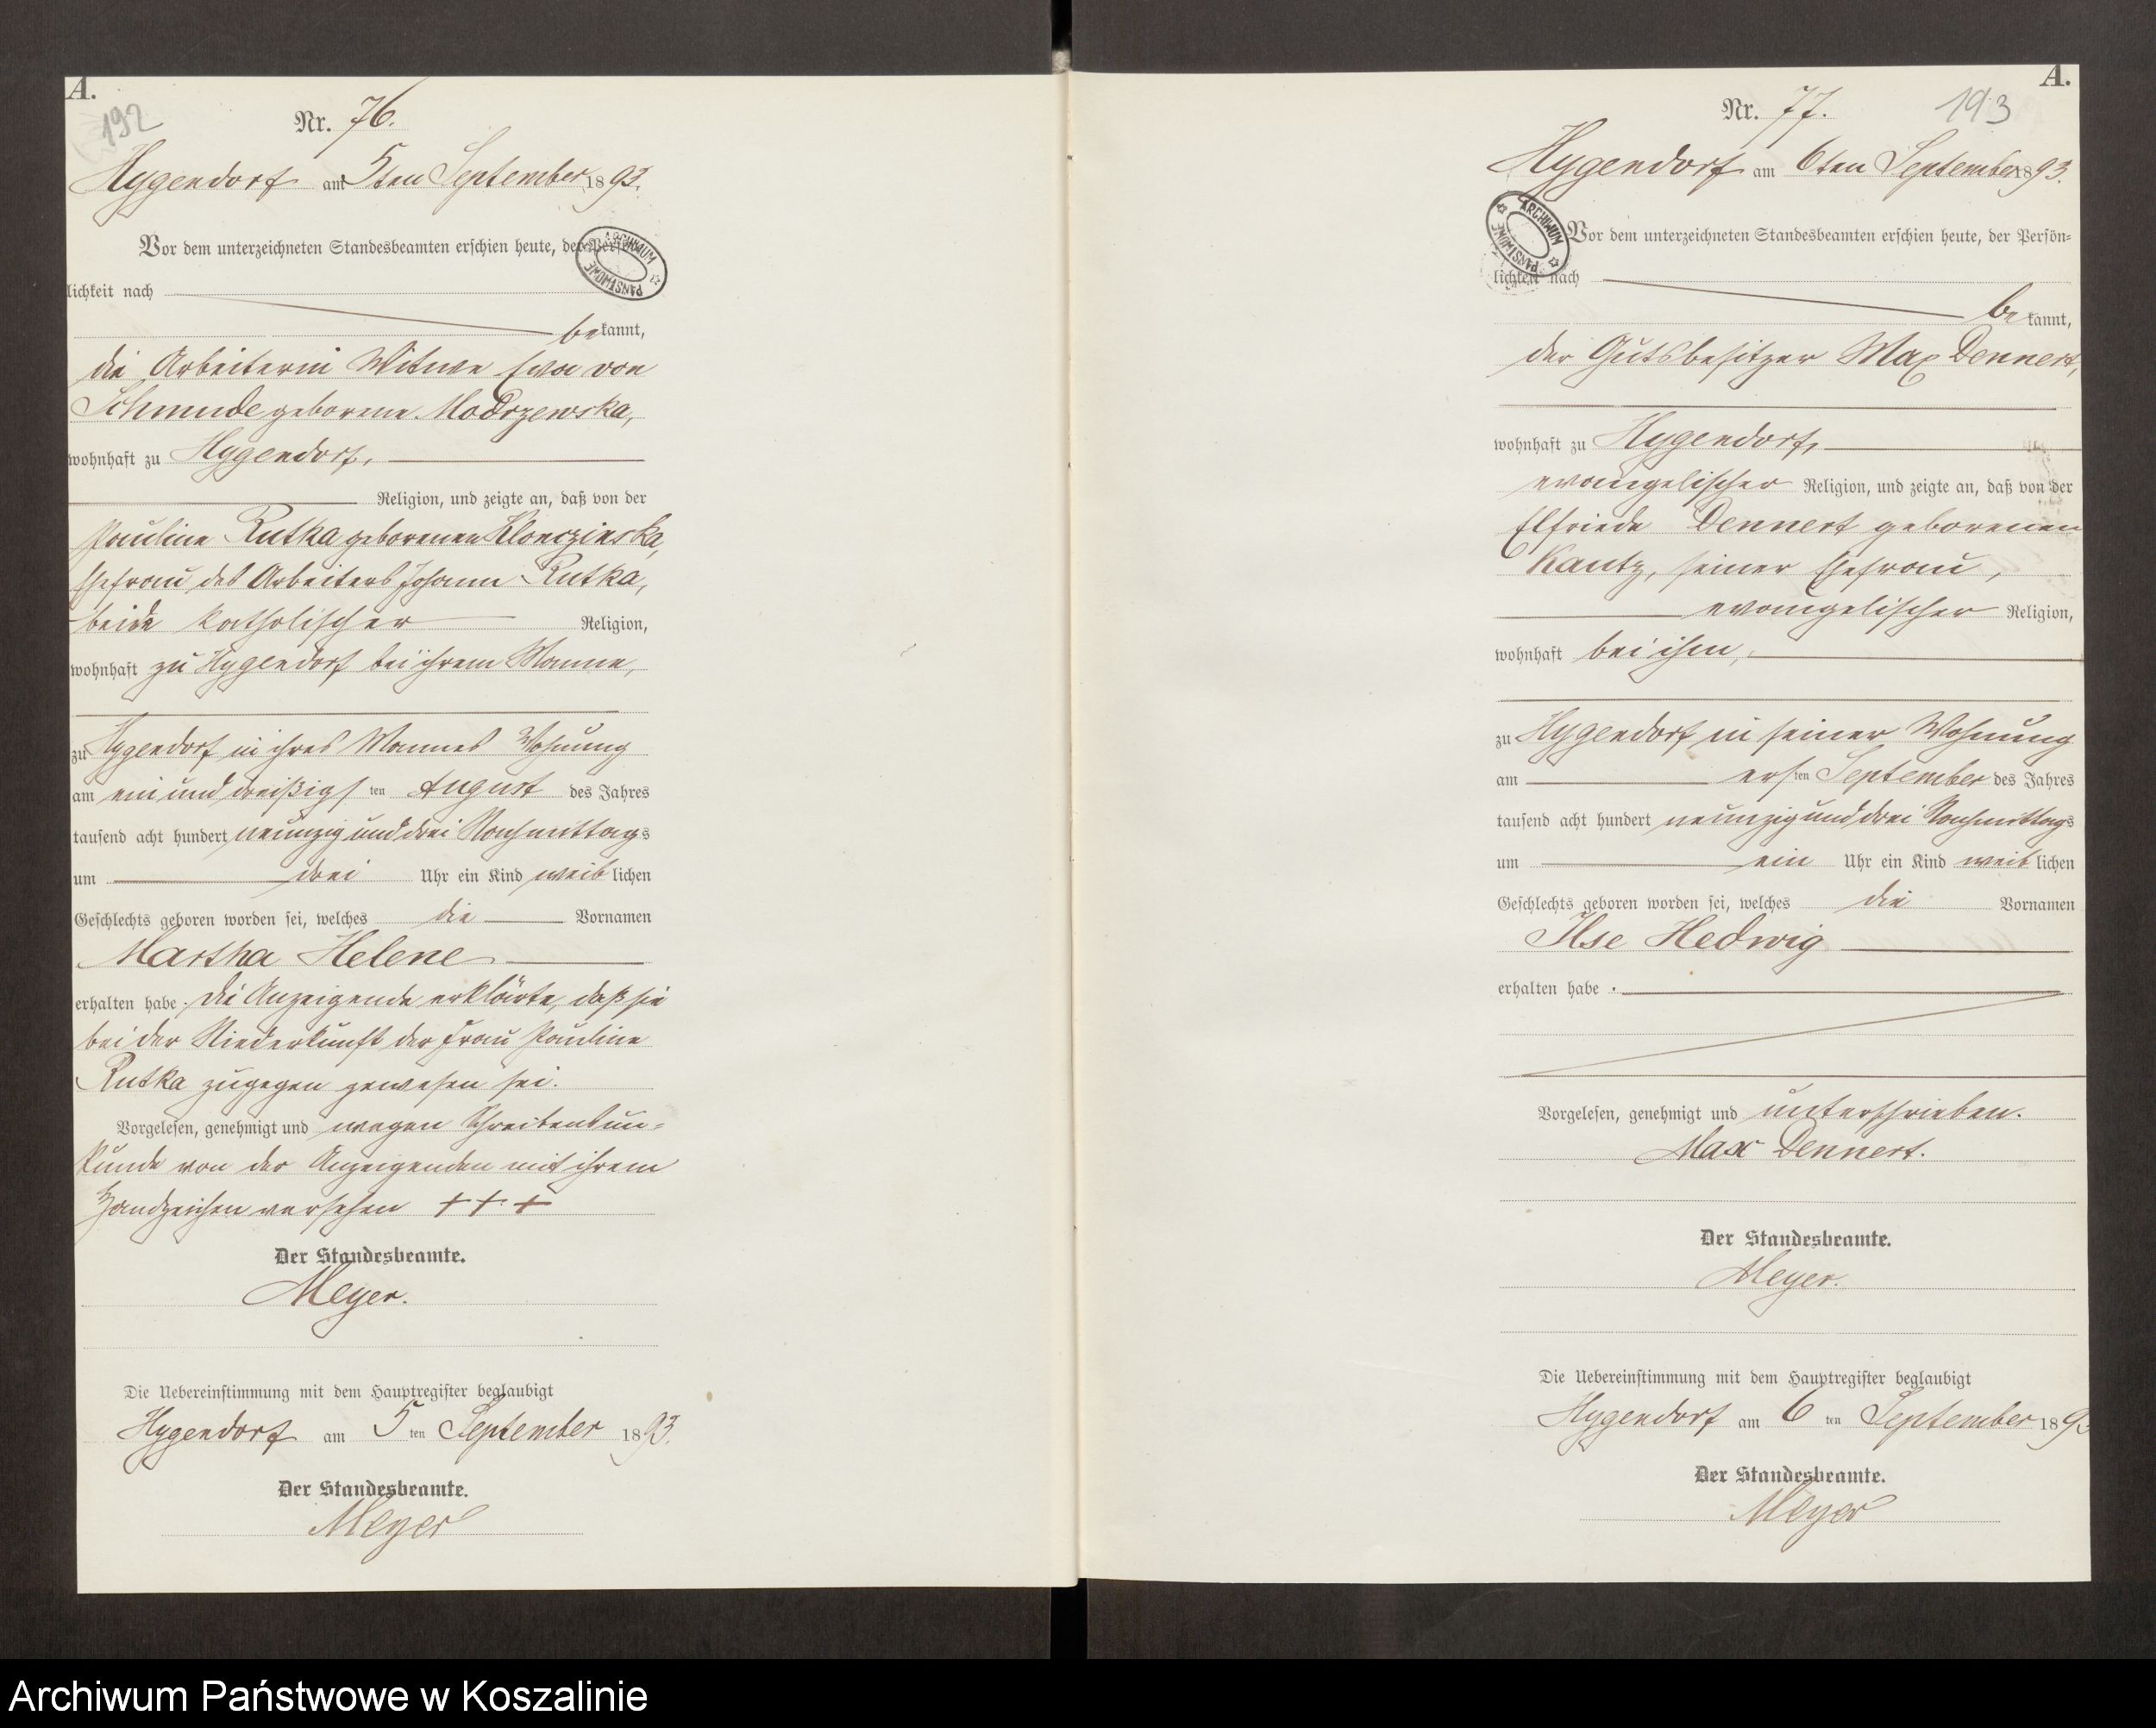 A.
192
Nr. 76.
Hygendorf am 5ten September 1893.
Vor dem unterzeichneten Standesbeamten erschien heute, der Persön-
lichkeit nach
bekannt,
die Arbeiterin Witwe Eva von
Schmude geborene Modrzewska,
wohnhaft zu Hygendorf,
Religion, und zeigte an, daß von der
Pauline Rutka geborenen Klonczinska,
Ehefrau des Arbeiters Johann Rutka,
beide katholischer Religion,
wohnhaft zu Hygendorf bei ihrem Manne,
zu Hygendorf in ihres Mannes Wohnung
am ein und dreißigsten August des Jahres
tausend acht hundert neunzig und drei Nachmittags
um drei Uhr ein Kind weiblichen
Geschlechts geboren worden sei, welches die Vornamen
Martha Helene
erhalten habe. Die Anzeigende erklärte, daß sie
bei der Niederkunft der Frau Pauline
Rutka zugegen gewesen sei.
Vorgelesen, genehmigt und wegen Schreibensun-
kunde von der Anzeigenden mit ihrem
Handzeichen versehen + + +
Der Standesbeamte.
Meyer.
Die Uebereinstimmung mit dem Hauptregister beglaubigt
Hygendorf am 5ten September 1893.
Der Standesbeamte.
Meyer
ARCHIWUM PAŃSTWOWE
A.
193
Nr. 77.
Hygendorf am 6ten September 1893.
Vor dem unterzeichneten Standesbeamten erschien heute, der Persön-
lichkeit nach
bekannt,
der Gutsbesitzer Max Dennert,
wohnhaft zu Hygendorf,
evangelischer Religion, und zeigte an, daß von der
Elfriede Dennert geborenen
Kautz, seiner Ehefrau,
evangelischer Religion,
wohnhaft bei ihm,
zu Hygendorf in seiner Wohnung
am ersten September des Jahres
tausend acht hundert neunzig und drei Nachmittags
um ein Uhr ein Kind weiblichen
Geschlechts geboren worden sei, welches die Vornamen
Ilse Hedwig
erhalten habe.
Vorgelesen, genehmigt und unterschrieben.
Max Dennert.
Der Standesbeamte.
Meyer.
Die Uebereinstimmung mit dem Hauptregister beglaubigt
Hygendorf am 6ten September 1893
Der Standesbeamte.
Meyer
ARCHIWUM PAŃSTWOWE
Archiwum Państwowe w Koszalinie